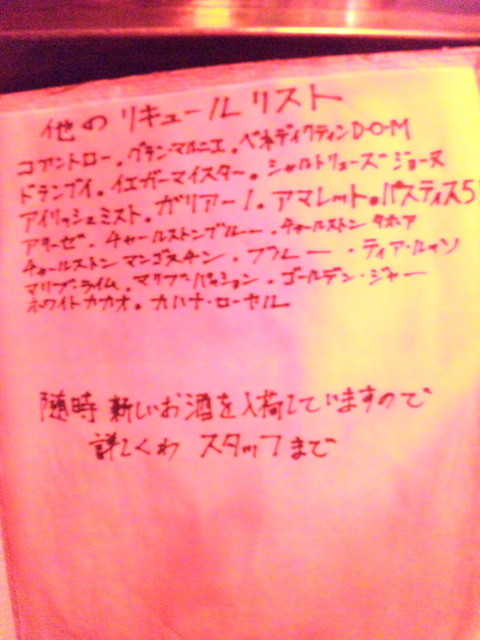 他のリキュールリスト
コアントロー。グランマルニエ。ベネディクティンD・O・M
ドランブイ。イエガーマイスター。シャルトリューズジョーヌ
アイリッシュミスト。ガリアーノ。アマレット。パスティス5
アリーゼ・チャールストンブルー・チャールストン
チャールストンマンゴスチン・ブルー・ティア・ルッソ
マリブ・ライム。マリブ・パッション・ゴールデン・ジャー
ホワイトカカオ。カハナ・ローヤル
随時新しいお酒を入荷していますので
詳しくわスタッフまで